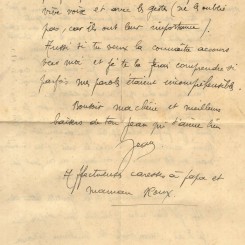 votre voix et avec le geste (ne l'oublie
pas, car ils ont leur importance)
Aussi si tu veux la connaître accours
vers moi et je te la ferai comprendre si
parfois mes paroles étaient incompréhensibles.
Bonsoir ma chérie et meilleurs
baisers de ton Jean qui t'aime bien
Jean
Affectueuses caresses à papa et
maman